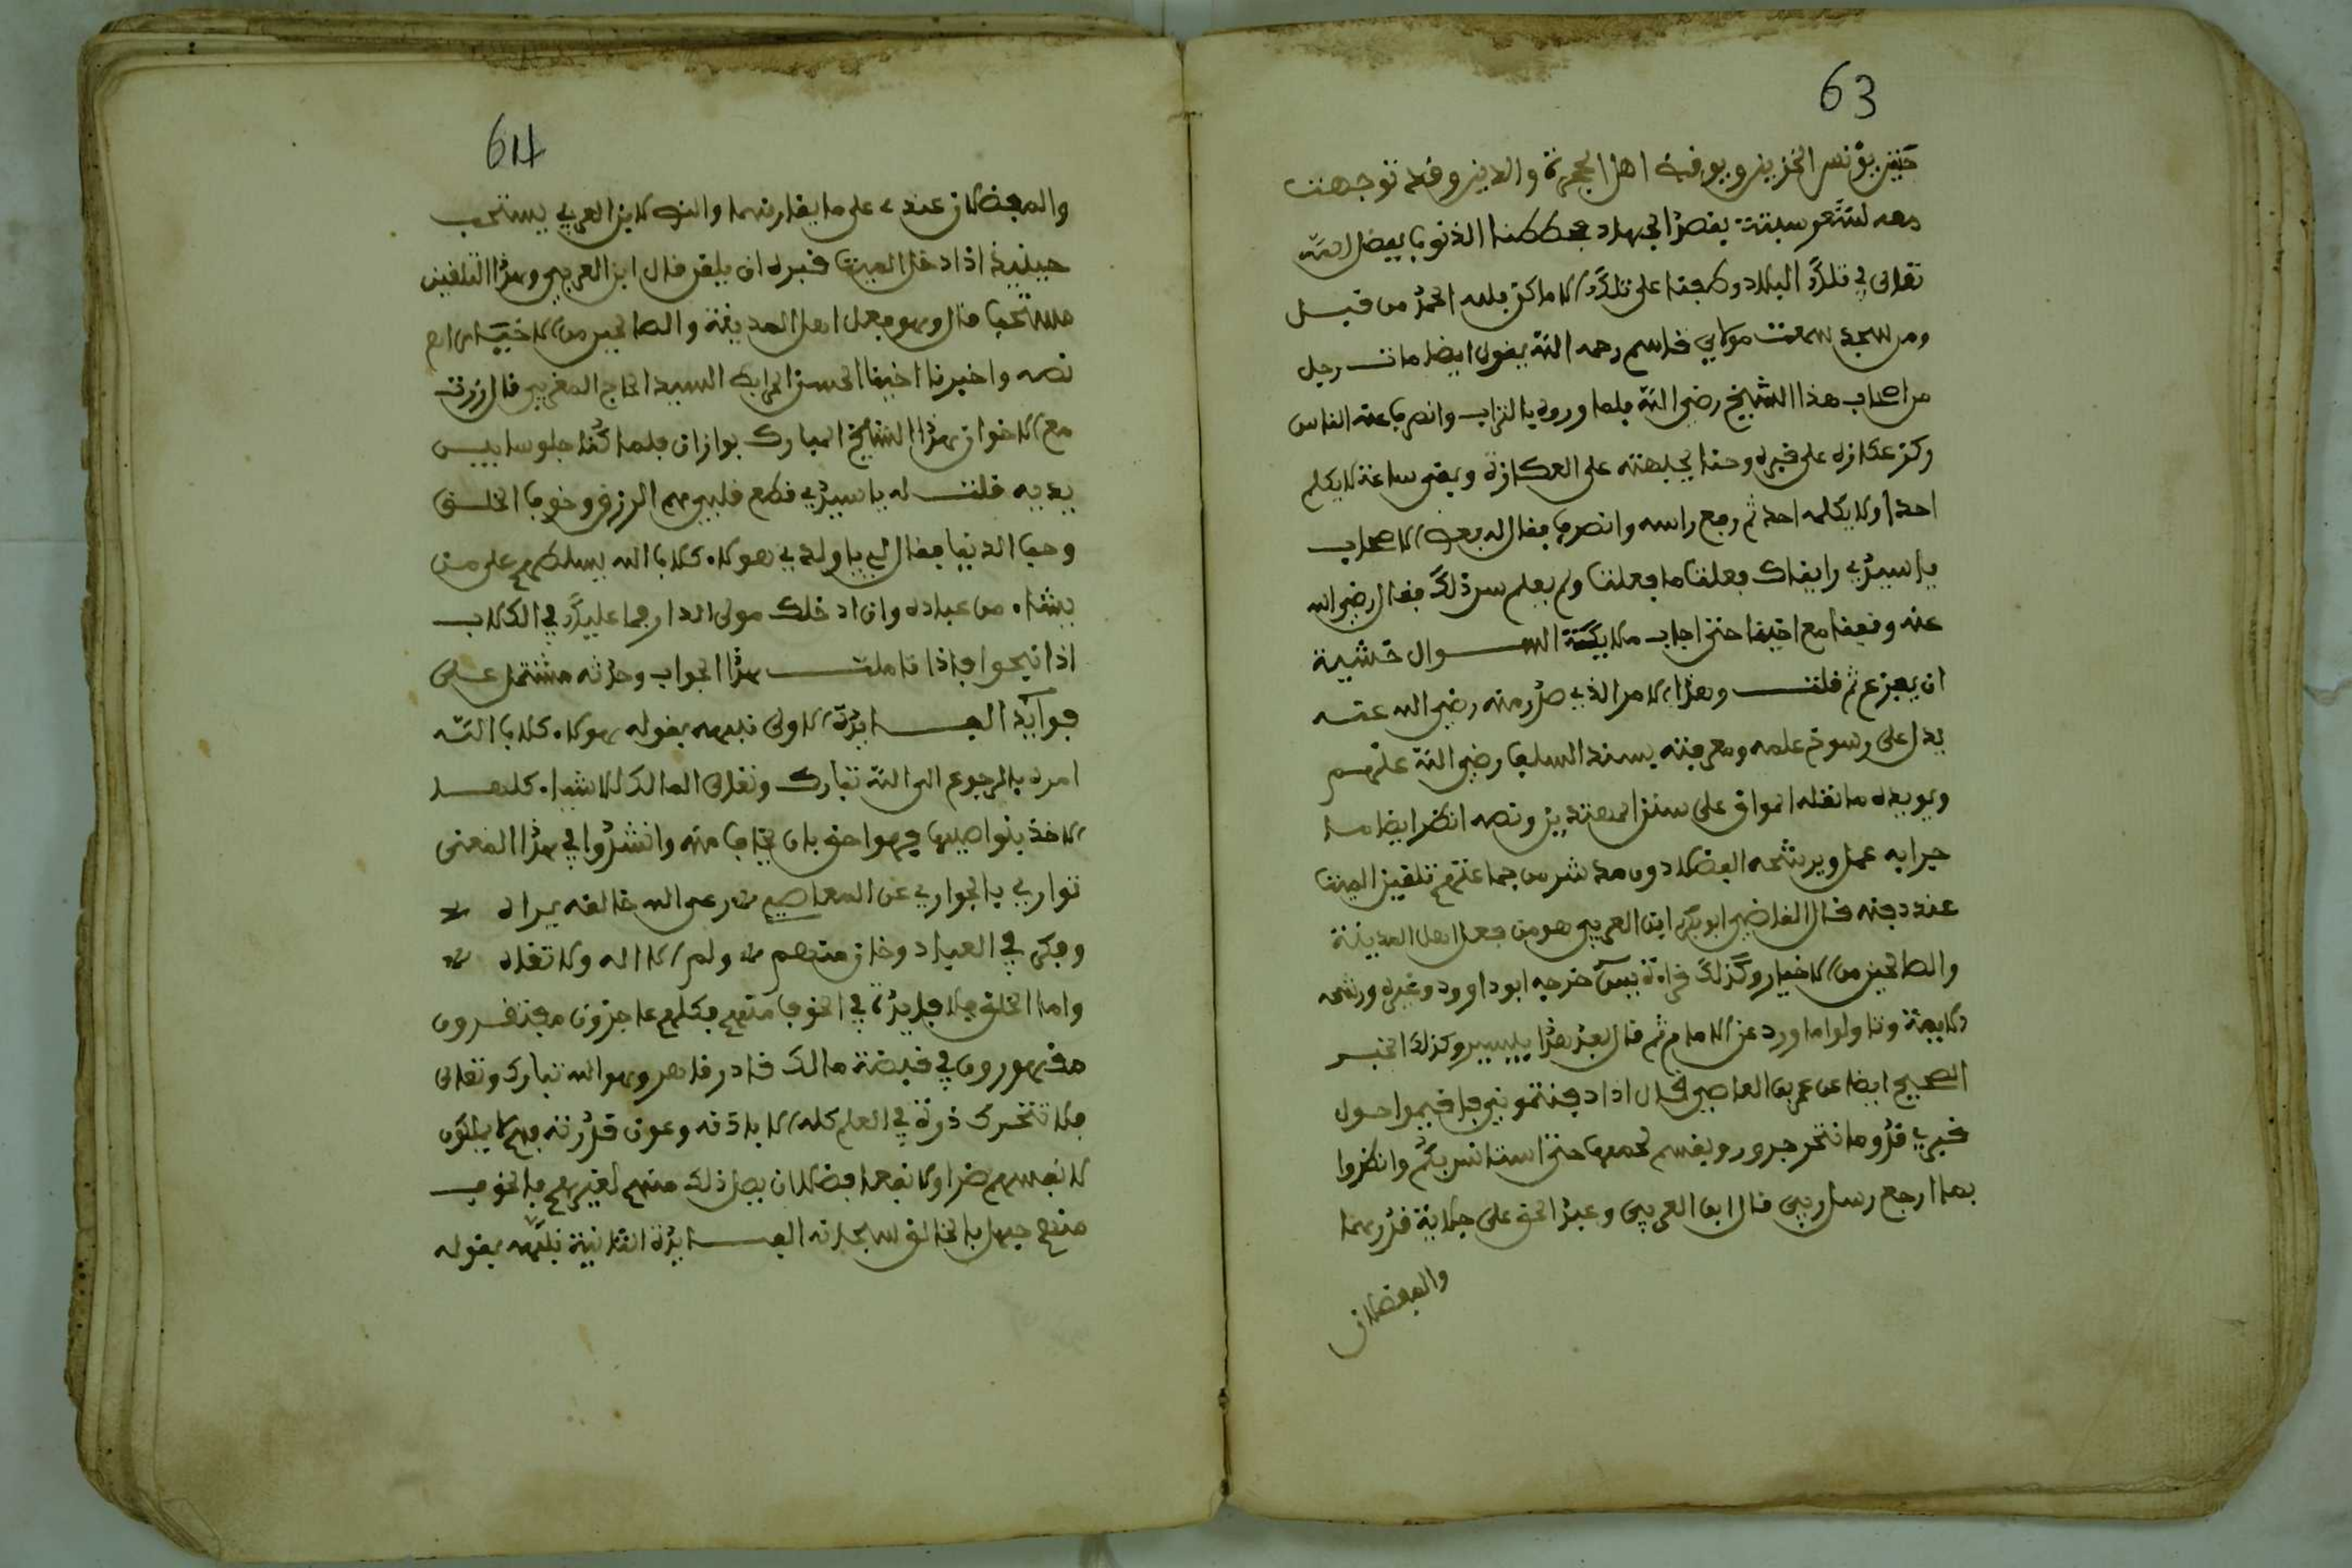 63
حنين يؤنس الحزين ويوفيه اهل الحجرة والدين وقد توجهت
معه لثغر سبتة بقصد الجهاد فحططنا الذنوب بفضل الله
تعالى في تلك البلاد وطفنا على تلك الاماكن فلله الحمد من قبل
ومن بعد سمعت مولاي قاسم رحمه الله يقول ايضا مات رجل
من اصحاب هذا الشيخ رضي الله فلما وروه بالتراب وانصرف عنه الناس
ركز عكازه على قبره وحنا بجبهته على العكازة وبقى ساعة لا يكلم
احدا ولا يكلمه احد ثم رفع راسه وانصرف فقال له بعض الاصحاب
يا سيدي رايناك فعلت ما فعلت ولم نعلم سر ذلك فقال رضي الله
عنه وقفنا مع اخينا حتى اجاب ملائكة السوال خشية
ان يفزع ثم قلت وهذا الامر الذي صدر منه رضي الله عنه
يدل على رسوخ علمه ومعرفته بسند السلف رضي الله عنهم
ويويده ما نقله المواق على سنن المهتدين ونصه انظر ايضا مما
جرا به عمل ويرشحه الفضلا دون مدشر من جماعتهم تلقين الميت
عند دفنه قال القاضي ابو بكر ابن العربي هو من فعل اهل المدينة
والصالحين من الاخيار وكذلك قراءة يس خرجه ابو داوود وغيره ورشحه
الايمة وتاولوا ما ورد عن الامام ثم قال بعد هذا بيسير وكذلك الخبر
الصحيح ايضا عن عمر بن العاصي قال اذا دفنتموني فاقيموا حول
قبري قدر ما تنحر جزور ويقسم لحمها حتى استانس بكم وانظروا
بما ارجع رسل ربي قال ابن العربي وعبد الحق على جلالة قدرهما
والفضلان
64
والفضلان عندي على ما يقارنهما والنص لابن العربي يستحب
حينيذ اذا ادخل الميت قبره ان يلقن قال ابن العربي وهذا التلقين
مستحب قال وهو فعل اهل المدينة والصالحين من الاخيار اهـ
نصه واخبرنا اخينا الحسن المرابط السيد الحاج المغربي قال زرت
مع الاخوان هذا الشيخ المبارك بوازان فلما كنا جلوسا بين
يديه قلت له يا سيدي قطع قلبي هم الرزق وخوف الخلق
وحب الدنيا فقال لي يا ولدي هولاء كلاب الله يسلطهم على من
يشاء من عباده وان ادخلك مولى الدار فما عليك في الكلاب
اذا نبحوا فاذا تاملت هذا الجواب وجدته مشتمل على
فوائد الفايدة الاولى نبهه بقوله هولاء كلاب الله
امره بالرجوع الى الله تبارك وتعالى المالك للاشياء كلها
الاخذ بنواصيها فهو احق بان يخاف منه وانشدوا في هذا المعنى
توارى بالجوارى عن المعاصي ۞ رعى الله خالقه يراه ۞
وفكر في العباد وخاف منهم ۞ ولم الااله ولا تقاه ۞
واما الخلق فلا فايدة في الخوف منهم فكلهم عاجزون مفتقرون
مقهورون في قبضة مالك قادر قاهر وهو الله تبارك وتعالى
فلا تتحرك ذرة في العالم كله الا باذنه وعون قدرته فهم لا يملكون
لانفسهم ضرا ولا نفعا فضلا ان يصل ذلك منهم لغيرهم فالخوف
منهم جهل بالخالق سبحانه الفايدة الثانية نبهه بقوله